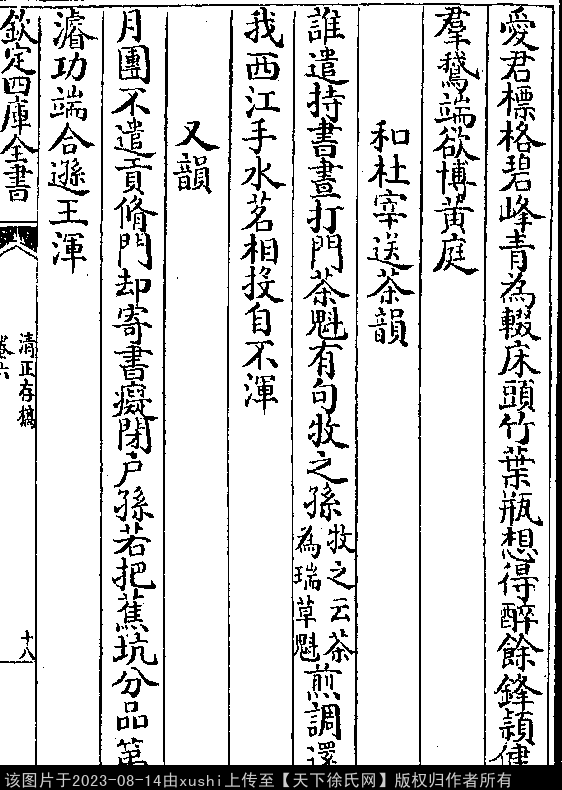 愛君標格碧峰青為輟床頭竹葉瓶想得醉餘鋒頴
羣鵞端欲博黄庭
和杜宰送茶韻
誰遣持書晝打門茶魁有句牧之孫牧之云茶為瑞草魁煎調還
我西江手水茗相投自不渾
又韻
月團不遣貢脩門却寄書癡閉户孫若把蕉坑分品第
濳功端合遜王渾
欽定四庫全書
清正存稿
卷六
十八
该图片于2023-08-14由xushi上传至【天下徐氏网】版权归作者所有